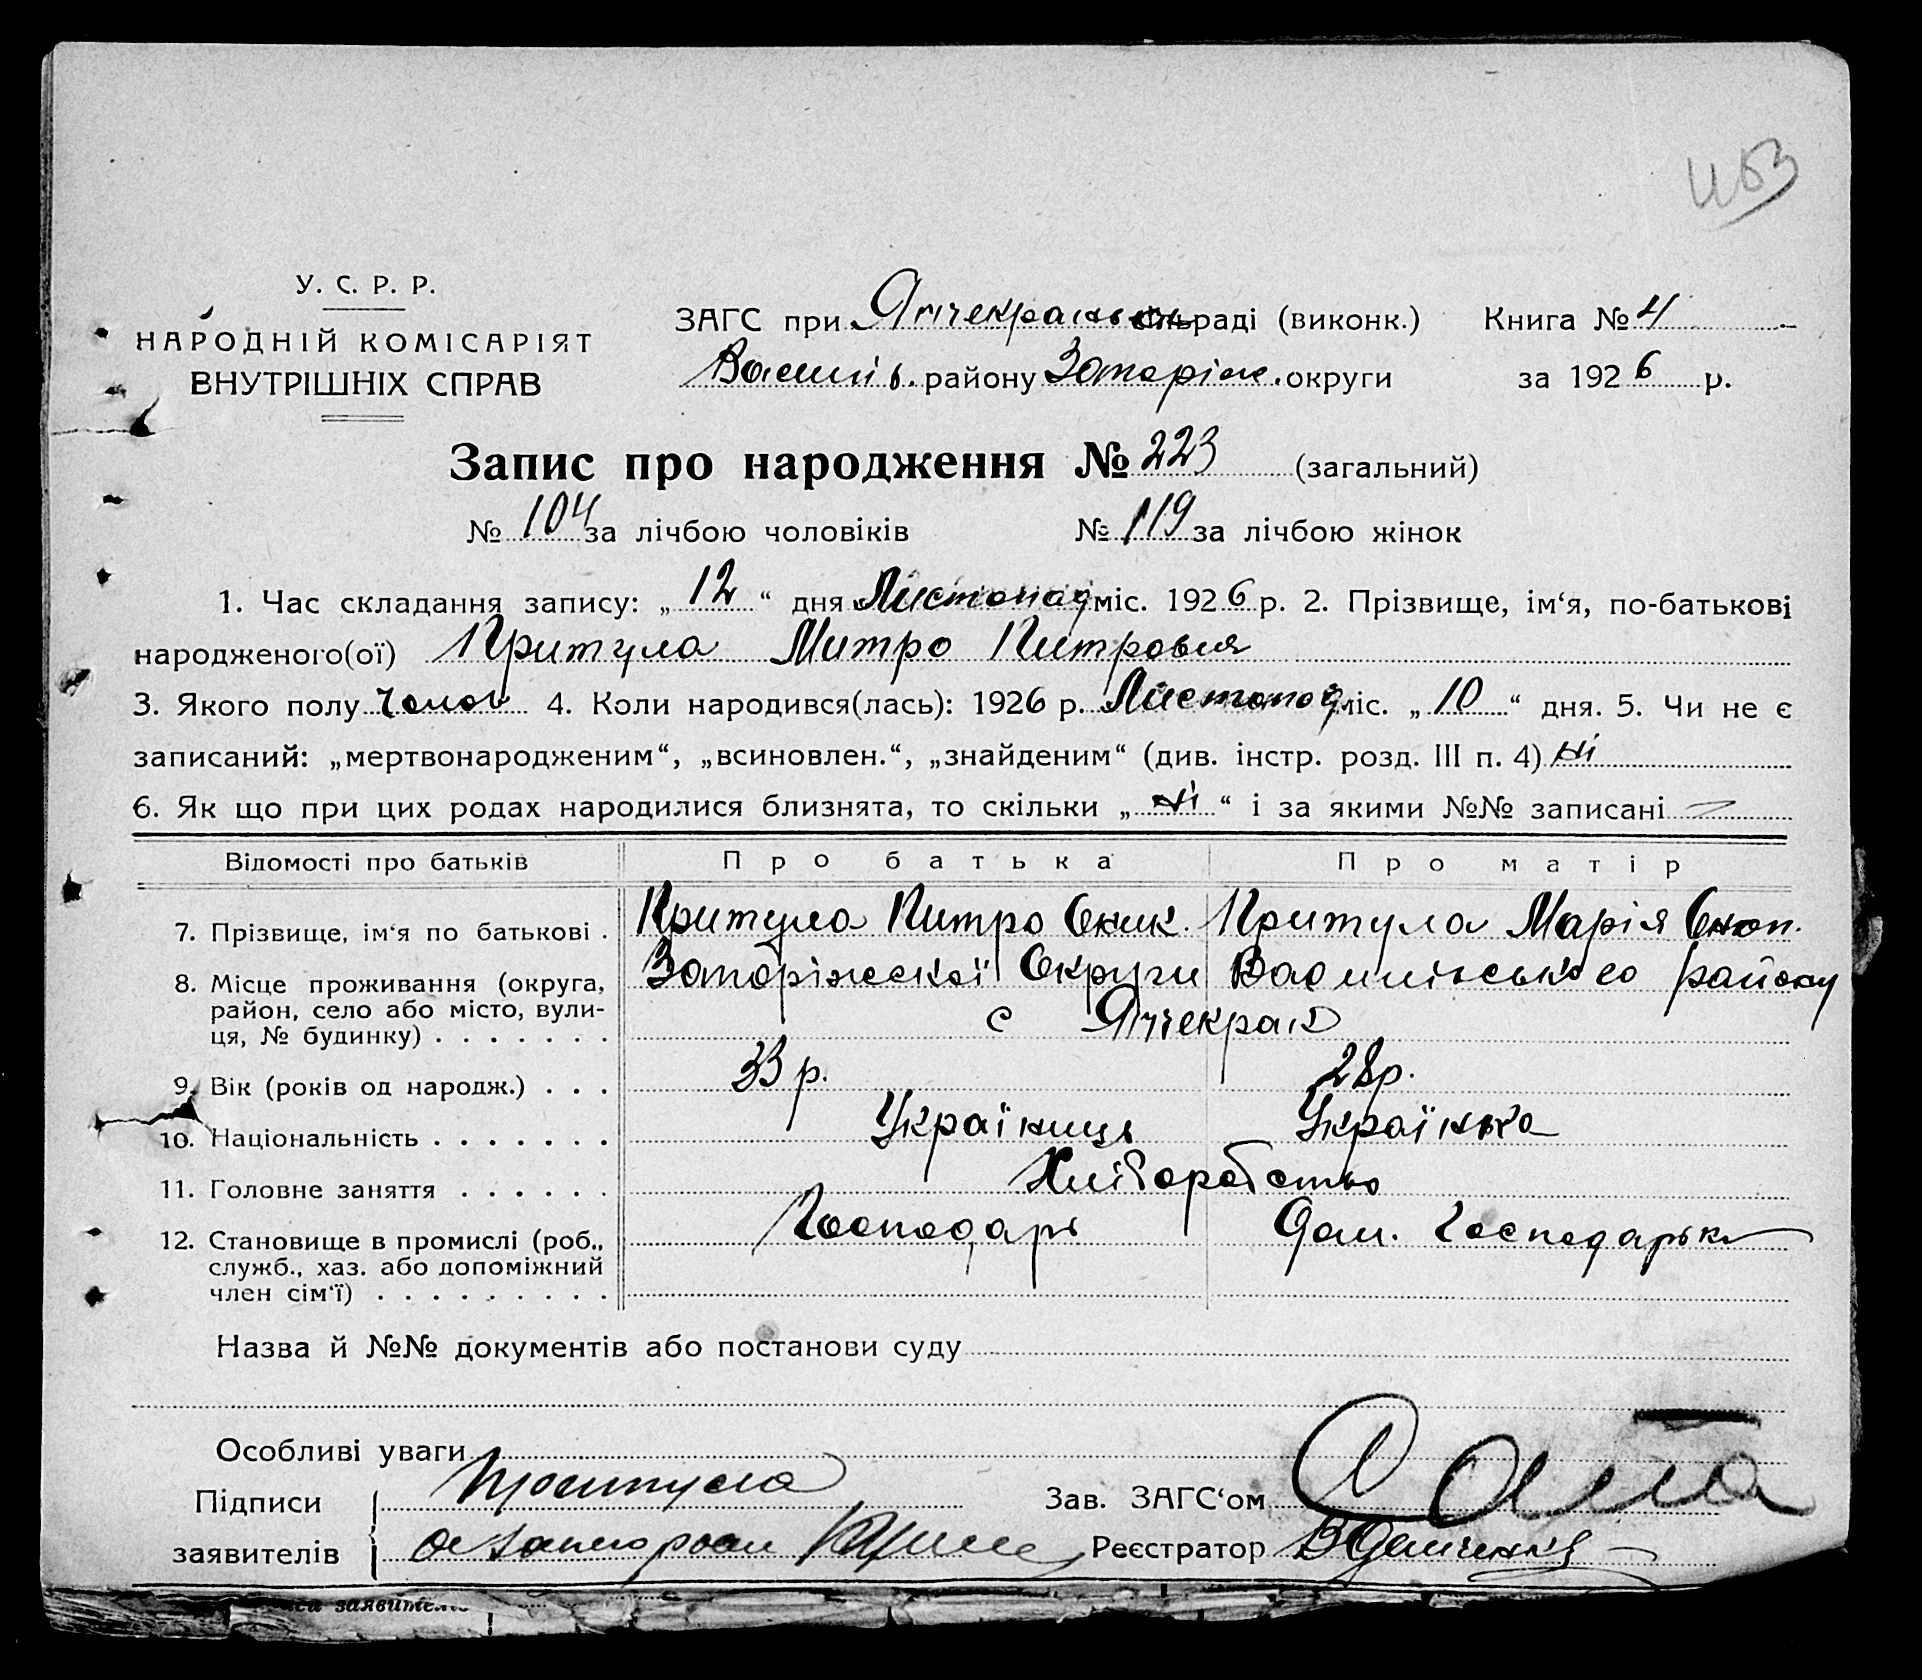 У. С. Р. Р.
НАРОДНІЙ КОМІСАРІЯТ
ВНУТРІШНІХ СПРАВ
ЗАГС при Янчекраньск раді (виконк.) Книга № 4
Василів. району Запоріж. округи за 1926 р.
Запис про народження № 223 (загальний)
№ 104 за лічбою чоловіків № 119 за лічбою жінок
1. Час складання запису: „12“ дня Листопад міс. 1926 р. 2. Прізвище, ім‘я, по-батькові
народженого(ої) Притула Митро Питровия
3. Якого полу чолов 4. Коли народився(лась): 1926 р. Листопад міс. „10“ дня. 5. Чи не є
записаний: „мертвонародженим“, „всиновлен.“, „знайденим“ (див. інстр. розд. III п. 4) ні
6. Як що при цих родах народилися близнята, то скільки „ні“ і за якими №№ записані —
Відомості про батьків Про батька Про матір
7. Прізвище, ім‘я по батькові . Притула Питро Оник. Притула Марія
8. Місце проживання (округа, Запоріжскої Округи Василівського району
район, село або місто, вули- с Янчекрак
ця, № будинку) . . . . . . .
9. Вік (років од народж.) . . . 33 р. 28 р.
10. Національність . . . . . . . Українець Українка
11. Головне заняття . . . . . . Хліборобство
12. Становище в промислі (роб., Господарь Дом. Господарька
служб., хаз. або допоміжний
член сім‘ї) . . . . . . . . . .
Назва й №№ документів або постанови суду
Особливі уваги
Підписи Притула Зав. ЗАГС‘ом
заявителів Реєстратор